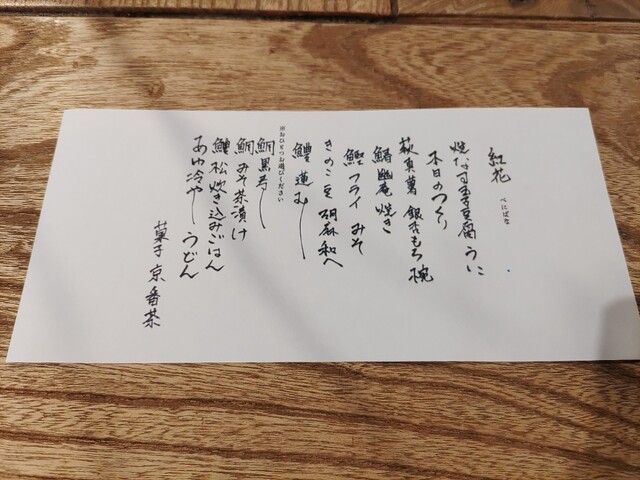 紅花
べにばな
焼なす玉子豆腐 うに
本日のつくり
萩真薯 銀杏もち 椀
鰆幽庵焼き
鰹フライ みそ
きのこ豆胡麻和へ
鱧蓮むし
※おひとつお選びください
鯛黒寿し
鯛みそ茶漬け
鱧松炊き込みごはん
あゆ冷やしうどん
菓子 京番茶